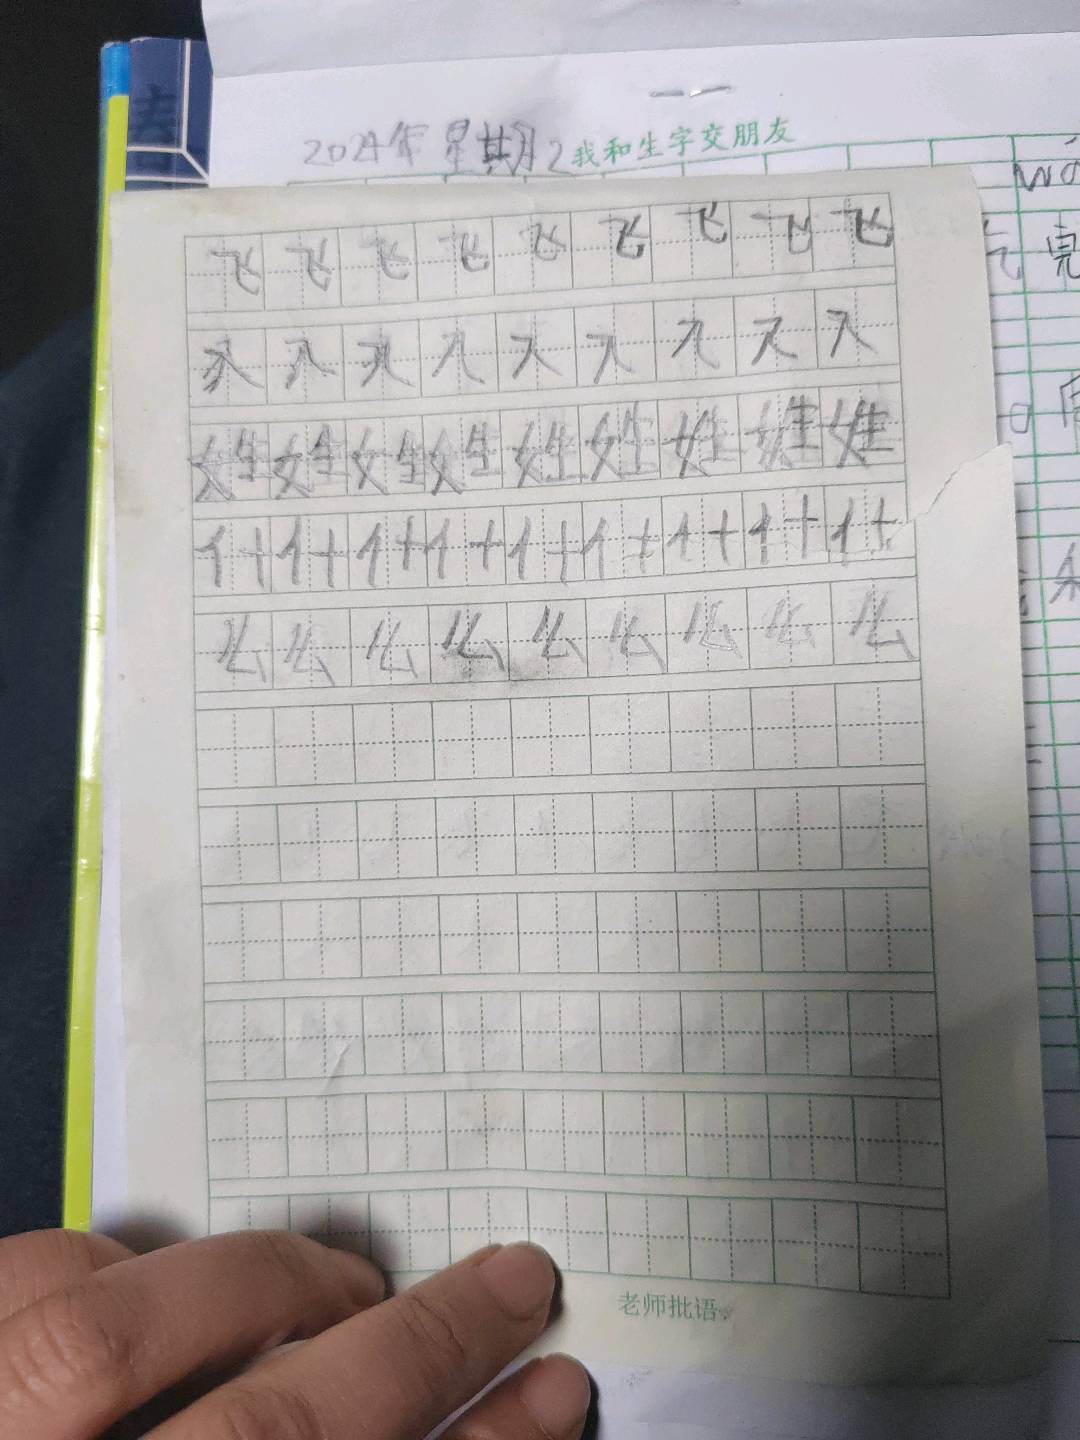 春
2024年 星期2 我和生字交朋友
飞飞飞飞飞飞飞飞飞
入入入入入入入入入
姓姓姓姓姓姓姓姓姓
什什什什什什什什什
么么么么么么么么么
老师批语: